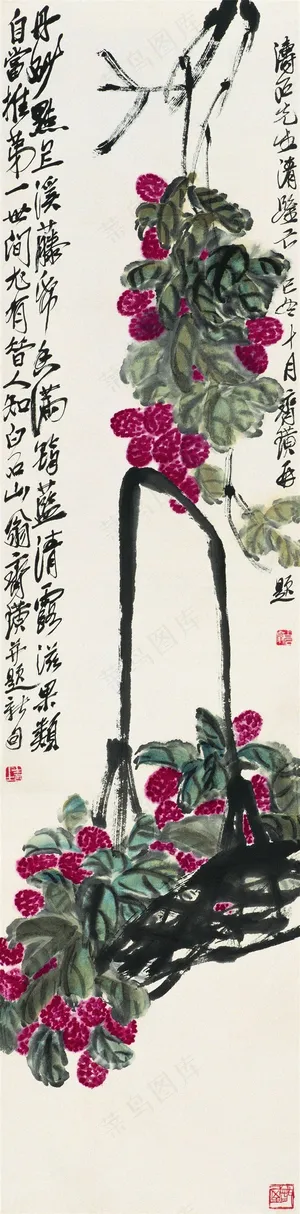 濤石先生清鑒 乙丑十月齊璜再
題
丹砂點上溪藤紙香滿筠藍清露滋果類
自當推第一世間尤有昔人知白石山翁齊璜并題新句
菜鸟图库